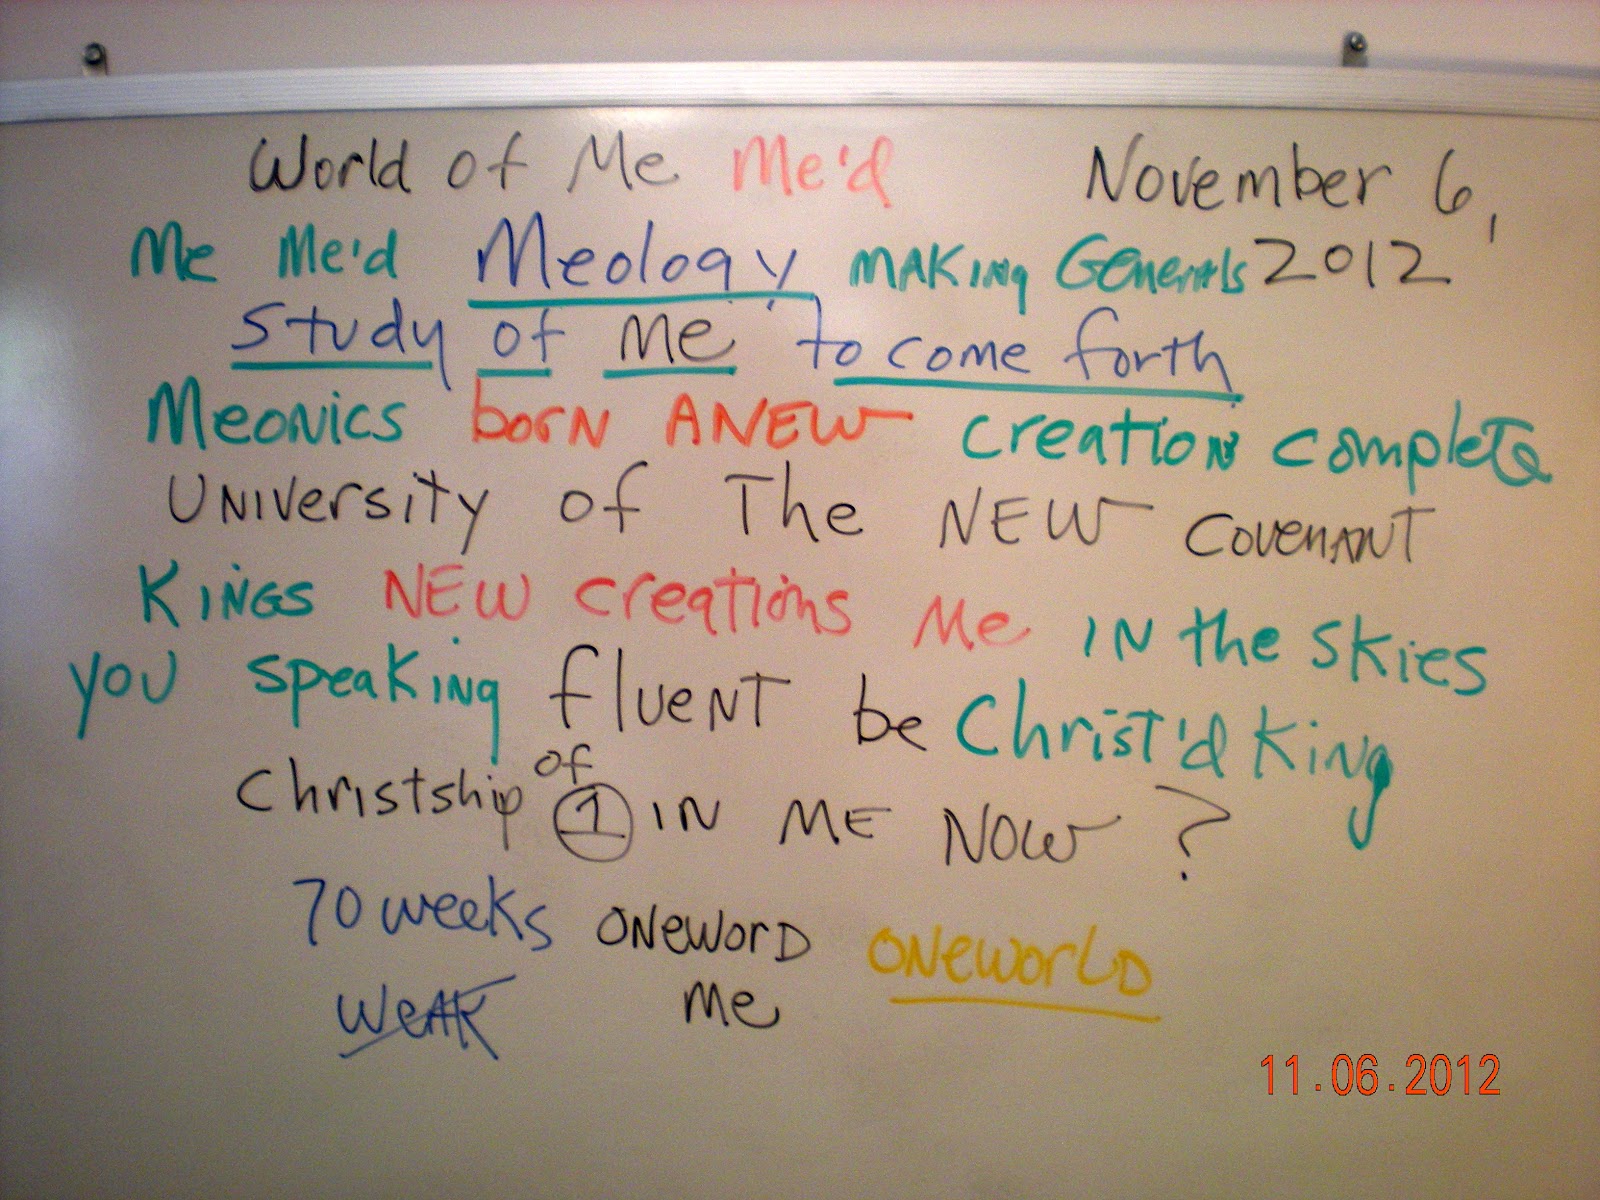 World of Me Me'd November 6,
Me Me'd Meology MAKINg Generals 2012
Study of Me to come forth
Meonics born ANEW creation complete
University of The NEW COVENANT
KINGS NEW creations Me IN the skies
you speaking fluent be Christ'd King
Christship of 1 IN ME NOW ?
70 weeks ONEWORD ONEWORLD
WEAK Me
11.06.2012